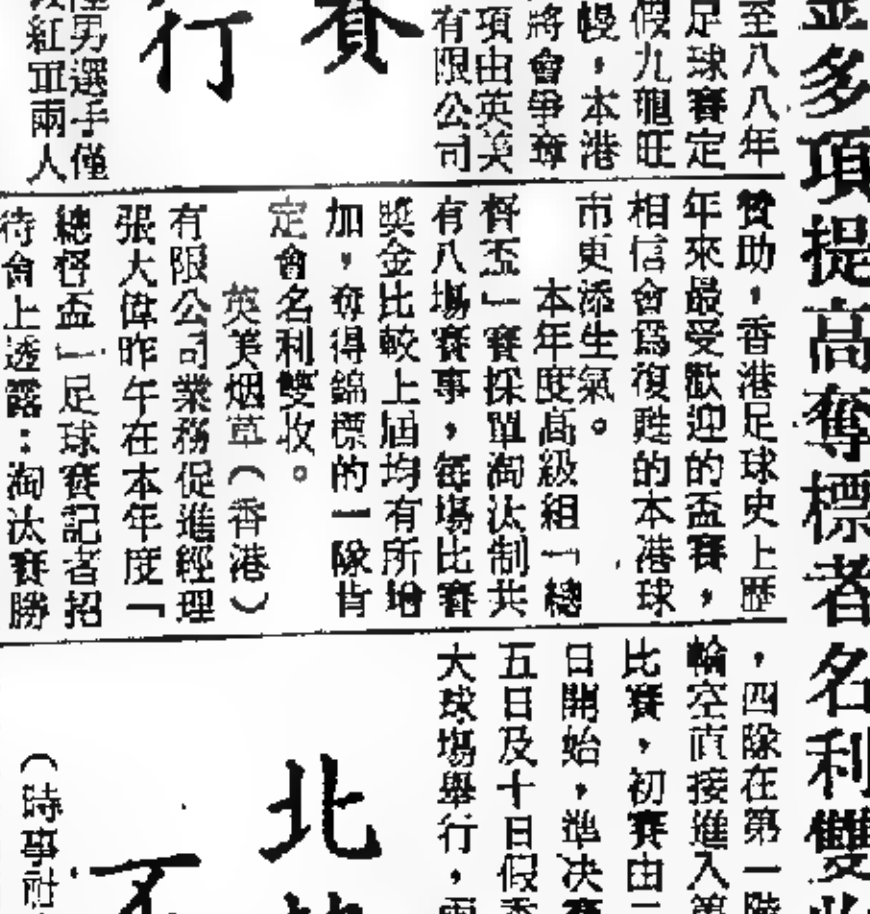 金多項提高奪標者名利雙收
至八八年
足球賽定
假九龍旺
幔，本港
將會爭奪
項由英美
有限公司
賽
行
男選手僅
紅軍兩人
贊助，香港足球史上歷
年來最受歡迎的盃賽，
相信會爲復甦的本港球
市更添生氣。
本年度高級組「總
督盃」賽採單淘汰制共
有八場賽事，每場比賽
獎金比較上屆均有所增
加，奪得錦標的一隊肯
定會名利雙收。
英美烟草（香港）
有限公司業務促進經理
張大偉昨午在本年度「
總督盃」足球賽記者招
待會上透露：淘汰賽勝
，四隊在第一階
輪空直接進入第
比賽，初賽由二
日開始，準决賽
五日及十日假香
大球場舉行，兩
北
不
（時事社